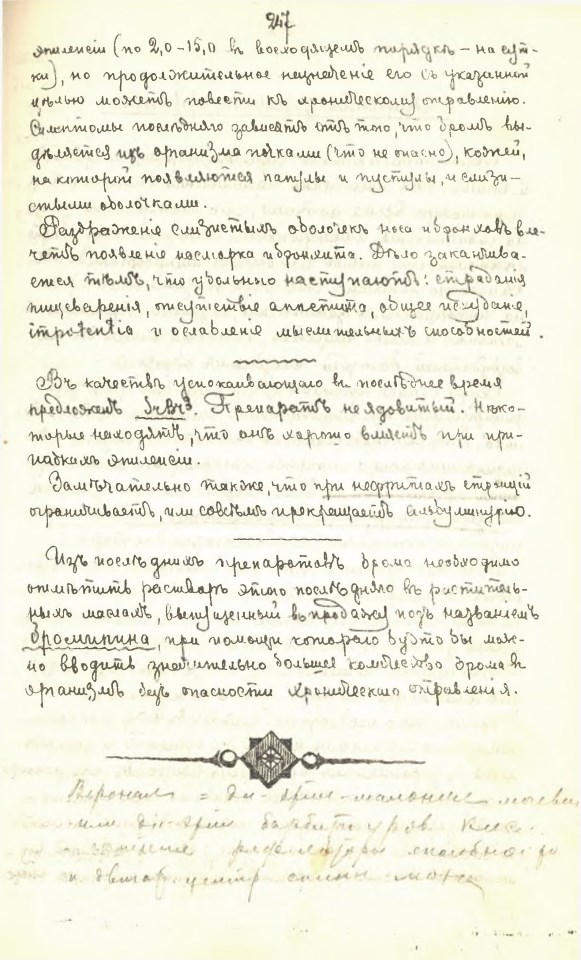 247
эпилепсіи (по 2,0–15,0 въ восходящемъ порядкѣ – на сут-
ки), но продолжительное назначеніе его съ указанной
цѣлью можетъ повести къ хроническому отравленію.
Симптомы послѣдняго зависятъ отъ того, что бромъ вы-
дѣляется изъ организма почками (что не опасно), кожей,
на которой появляются папулы и пустулы, и слизи-
стыми оболочками.
Раздраженіе слизистыхъ оболочекъ носа и бронховъ вле-
четъ появленіе насморка и бронхита. Дѣло заканчива-
ется тѣмъ, что у больного наступаютъ: страданія
пищеваренія, отсутствіе аппетита, общее исхуданіе,
impotentia и ослабленіе мыслительныхъ способностей.
Въ качествѣ успокаивающаго въ послѣднее время
предложенъ SrBr³. Препаратъ не ядовитый. Нѣко-
торые находятъ, что онъ хорошо вліяетъ при при-
падкахъ эпилепсіи.
Замѣчательно также, что при нефритахъ стронцій
ограничиваетъ, или совсѣмъ прекращаетъ альбуминурію.
Изъ послѣднихъ препаратовъ брома необходимо
отмѣтить растворъ этого послѣдняго въ раститель-
ныхъ маслахъ, выпущенный въ продажу подъ названіемъ
Бромипина, при помощи котораго будто бы мож-
но вводить значительно большее количество брома въ
организмъ безъ опасности хроническаго отравленія.
Вероналъ = ди-этил-малонил мочевин
или ди-этил барбитуров кис.